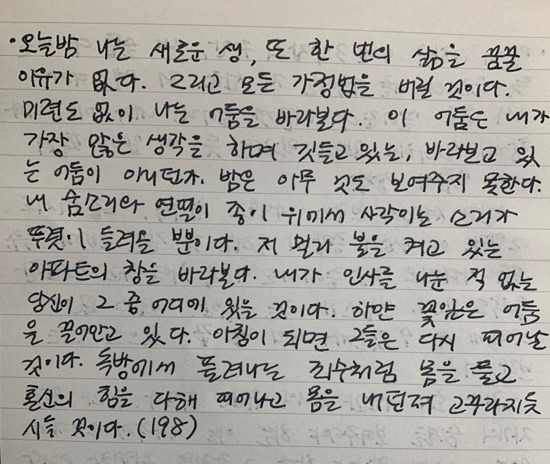 · 오늘밤 나는 새로운 생, 또 한 번의 삶을 꿈꿀
이유가 없다. 그리고 모든 가정법을 버릴 것이다.
미련도 없이 나는 어둠을 바라본다. 이 어둠은 내가
가장 많은 생각을 하며 깃들고 있는, 바라보고 있
는 어둠이 아니던가. 밤은 아무 것도 보여주지 못한다.
내 숨소리와 연필이 종이 위에서 사각이는 소리가
뚜렷이 들려올 뿐이다. 저 멀리 불을 켜고 있는
아파트의 창을 바라본다. 내가 인사를 나눈 적 없는
당신이 그 중 어디에 있을 것이다. 하얀 꽃잎은 어둠
을 끌어안고 있다. 아침이 되면 그들은 다시 피어날
것이다. 독방에서 풀려나는 죄수처럼 몸을 풀고
혼신의 힘을 다해 피어나고 몸을 내던져 고꾸라지듯
시들 것이다. (198)